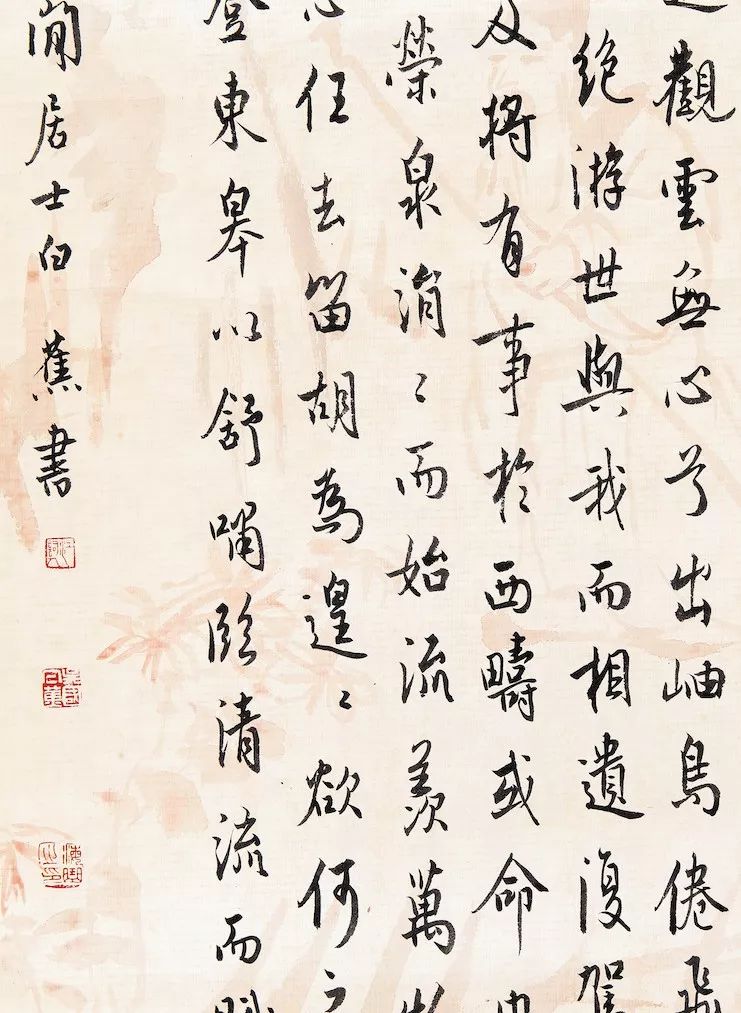 觀雲無心兮出岫鳥倦飛
絕游世與我而相遺復駕
及將有事於西疇或命
榮泉涓〻而始流羨萬
任去留胡為遑〻欲何之
登東皋以舒嘯臨清流而賦
閒居士白蕉書